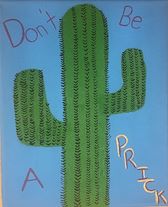 Don't Be
A
PRICK